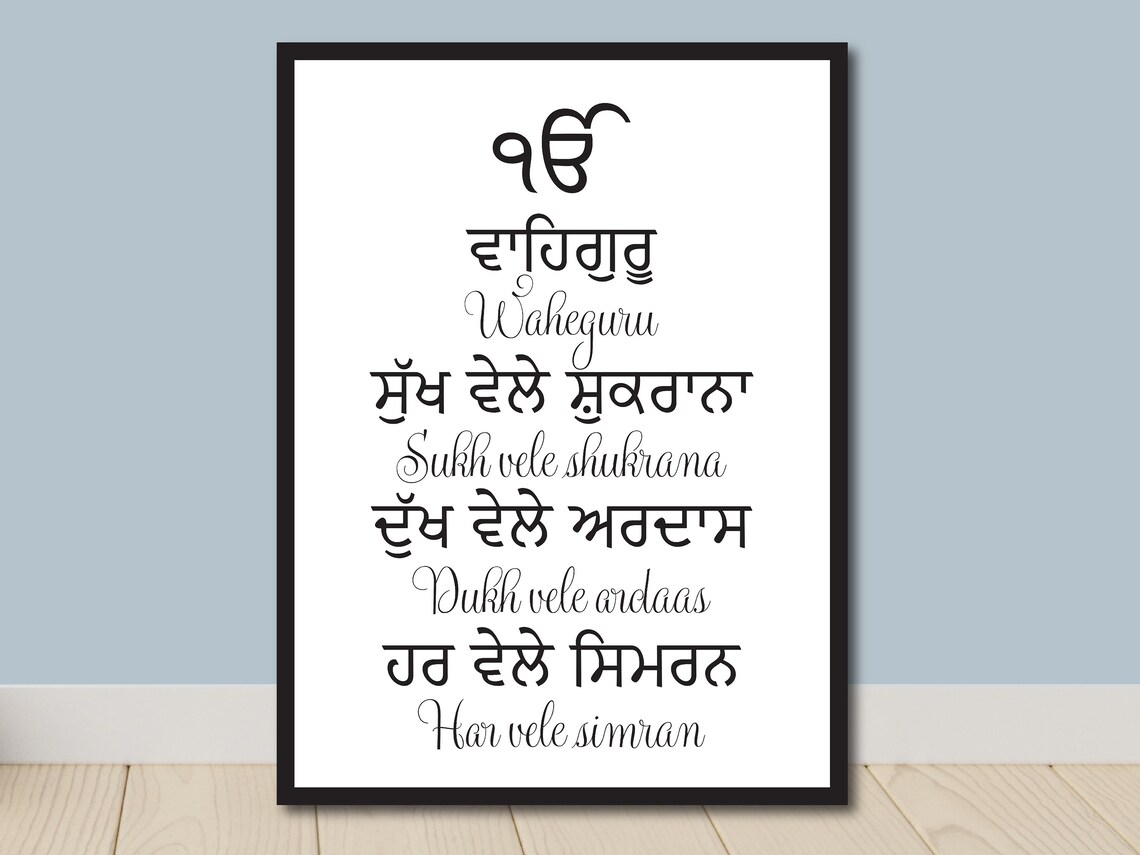 ੴ
ਵਾਹਿਗੁਰੂ
Waheguru
ਸੁੱਖ ਵੇਲੇ ਸ਼ੁਕਰਾਨਾ
Sukh vele shukrana
ਦੁੱਖ ਵੇਲੇ ਅਰਦਾਸ
Dukh vele ardaas
ਹਰ ਵੇਲੇ ਸਿਮਰਨ
Har vele simran